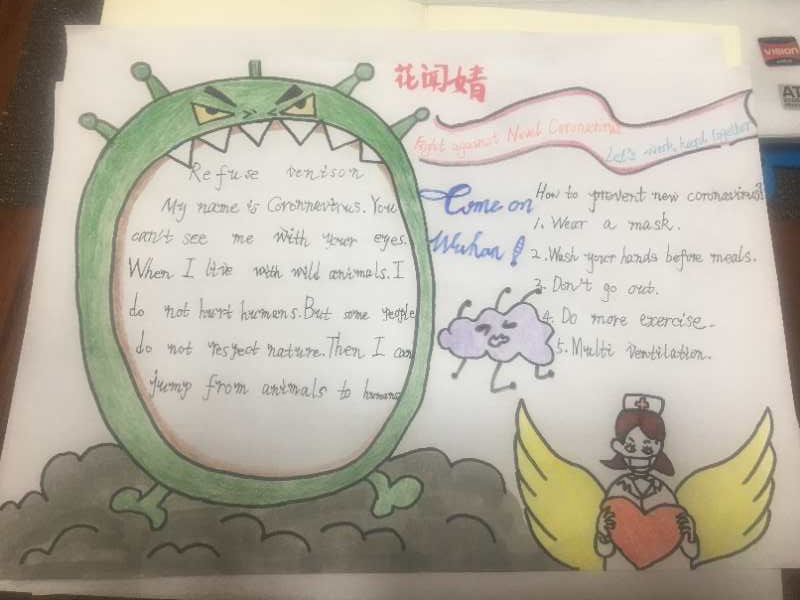 花闻婧
Fight against Novel Coronavirus
Let's work hard together
Refuse venison
My name is Coronnavirus. You
can't see me with your eyes.
When I live with wild animals. I
do not hurt humans. But some people
do not respect nature. Then I can
jump from animals to humans
Come on
Wuhan!
How to prevent new coronavirus?
1. Wear a mask.
2. Wash your hands before meals.
3. Don't go out.
4. Do more exercise.
5. Multi ventilation.
VISION
AT